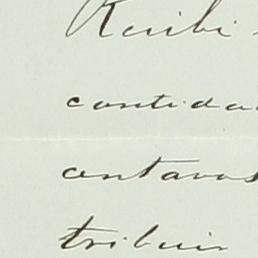 Recibi
cantida
centavos
tribuir